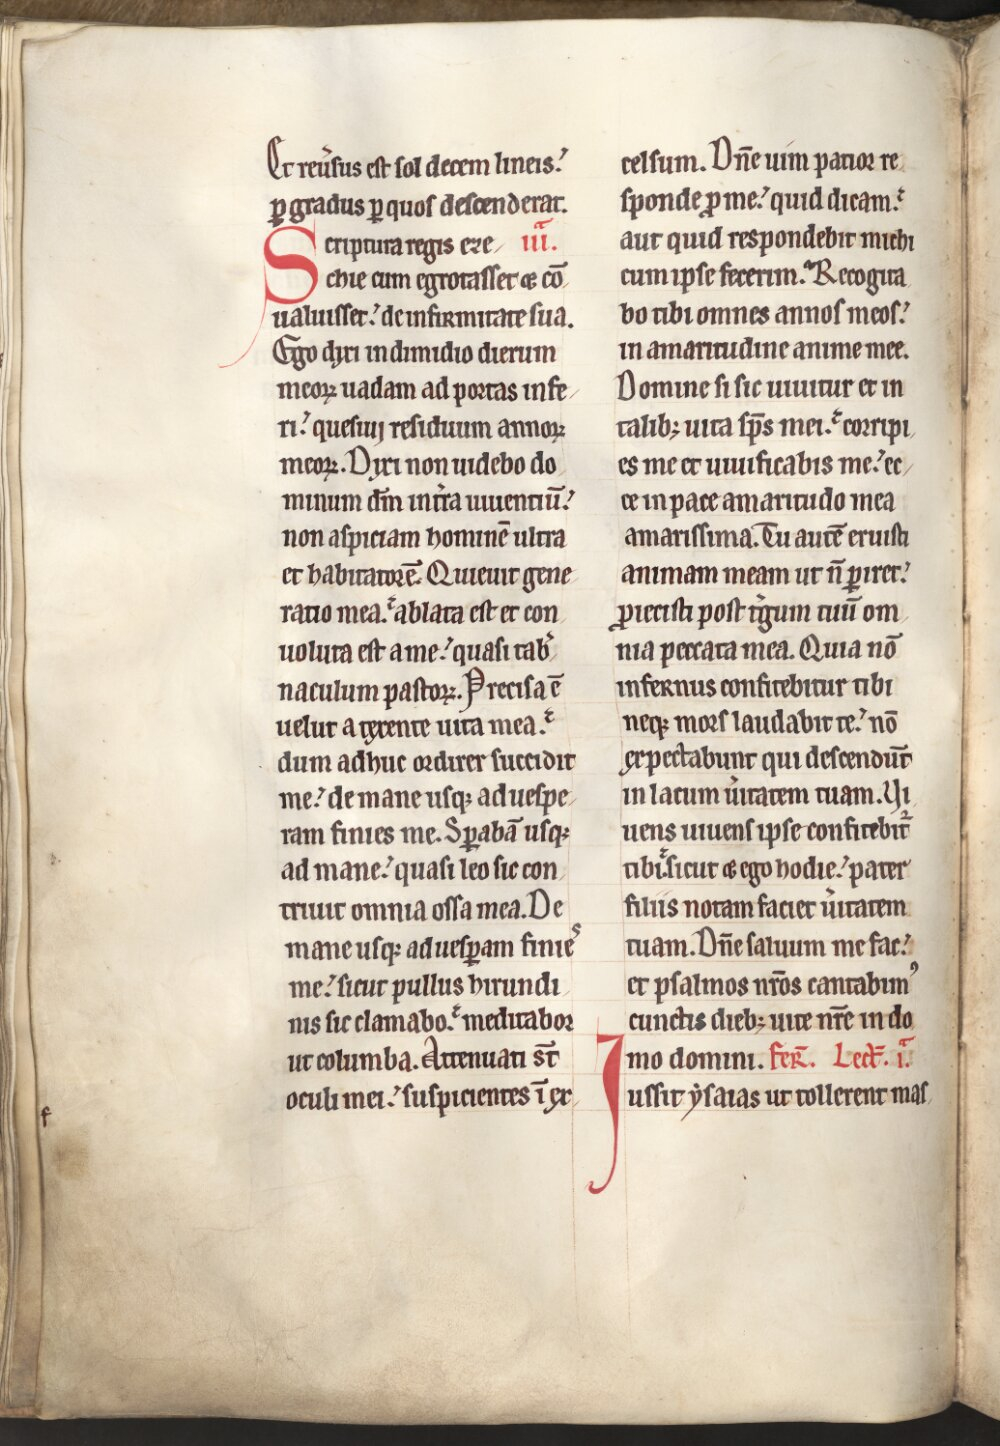 Et reu̾sus est sol decem lineis.
ꝑ gradus ꝑ quos descenderat.
Scriptura regis eze iii.ͣ
chie cum egrotasset ⁊ cō
ualuisset. de infirmitate sua.
Ego dixi in dimidio dierum
meoꝝ uadam ad portas infe
ri. quesiuj residuum annoꝝ
meoꝝ. Dixi non uidebo do
minum dm̄ in tr̄a uiuentiū.
non aspiciam hominē ultra
et habitatorē. Quieuit gene
ratio mea. ablata est et con
uoluta est a me. quasi tab̾
naculum pastoꝝ. Precisa ē
uelut a texente uita mea.
dum adhuc ordirer succidit
me. de mane usqꝫ ad uespe
ram finies me. Sꝑabā usqꝫ
ad mane. quasi leo sic con
triuit omnia ossa mea. De
mane usqꝫ ad uesꝑam finieˢ
me. sicut pullus hirundi
nis sic clamabo. meditabor
ut columba. Attenuati st̄
oculi mei. suspicientes ī ex
celsum. Dn̄e uim patior re
sponde ꝓ me. quid dicam.
aut quid respondebit michi
cum ipse fecerim. Recogita
bo tibi omnes annos meos.
in amaritudine anime mee.
Domine si sic uiuitur et in
talibꝫ uita sp̄s mei. corripi
es me et uiuificabis me. ec
ce in pace amaritudo mea
amarissima. Tu autē eruisti
animam meam ut n̄ ꝑiret.
ꝓiecisti post t̾gum tuū om
nia peccata mea. Quia nō
infernus confitebitur tibi
neqꝫ mors laudabit te. nō
expectabunt qui descendūt
in lacum u̾itatem tuam. Vi
uens uiuens ipse confitebit᷑
tibi. sicut ⁊ ego hodie. pater
filiis notam faciet u̾itatem
tuam. Dn̄e saluum me fac.
et psalmos nr̄os cantabimꝰ
cunctis diebꝫ uite nr̄e in do
mo domini. Fer̄. Lect̄. i.ͣ
Iussit ẏsaias ut tollerent mas
f